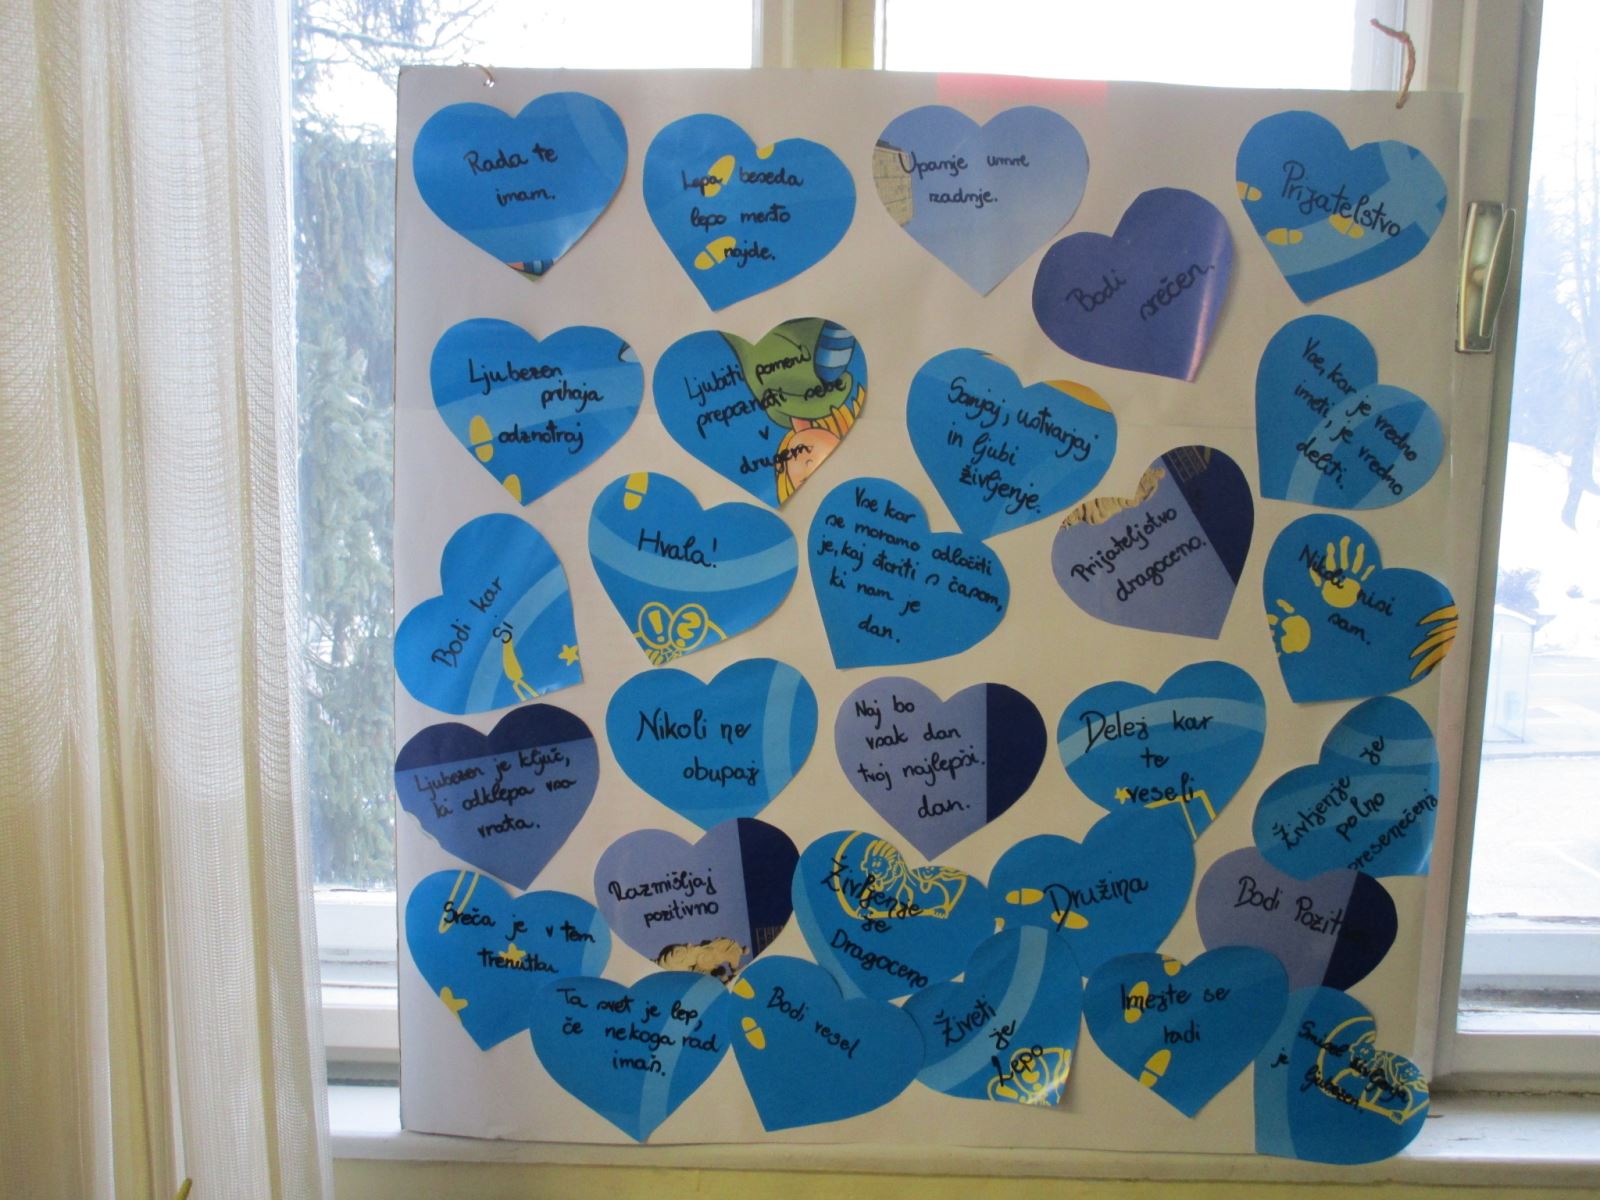 Rada te
imam.
Lepa beseda
lepo mesto
najde.
Upanje umre
zadnje.
Bodi
srečen.
Prijatelstvo
Ljubezen
prihaja
odznotraj
Ljubiti pomeni
prepoznati sebe
v
drugem
Sanjaj, ustvarjaj
in ljubi
življenje.
Vse, kar je vredno
imeti, je vredno
deliti.
Bodi kar
Si
Hvala!
Vse kar
se moramo odločiti
je, kaj storiti s časom,
ki nam je
dan.
Prijateljstvo
dragoceno.
Nikoli nisi
sam.
Ljubezen je ključ,
ki odklepa vsa
vrata.
Nikoli ne
obupaj
Naj bo
vsak dan
tvoj najlepši.
dan.
Delej kar
te
veseli
Življenje je
polno
presenečenj
Sreča je v tem
trenutku
Razmišljaj
pozitivno
Življenje
je
Dragoceno
Družina
Bodi Pozit
Ta svet je lep,
če nekoga rad
imaš.
Bodi vesel
Živeti
je
Lepo
Imejte se
radi
Smisel življenja
je ljubezen.